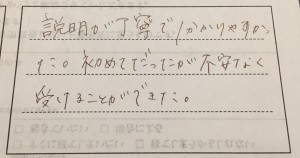 説明が丁寧で分かりやすかっ
た。初めてだったが不安なく
受けることができた。